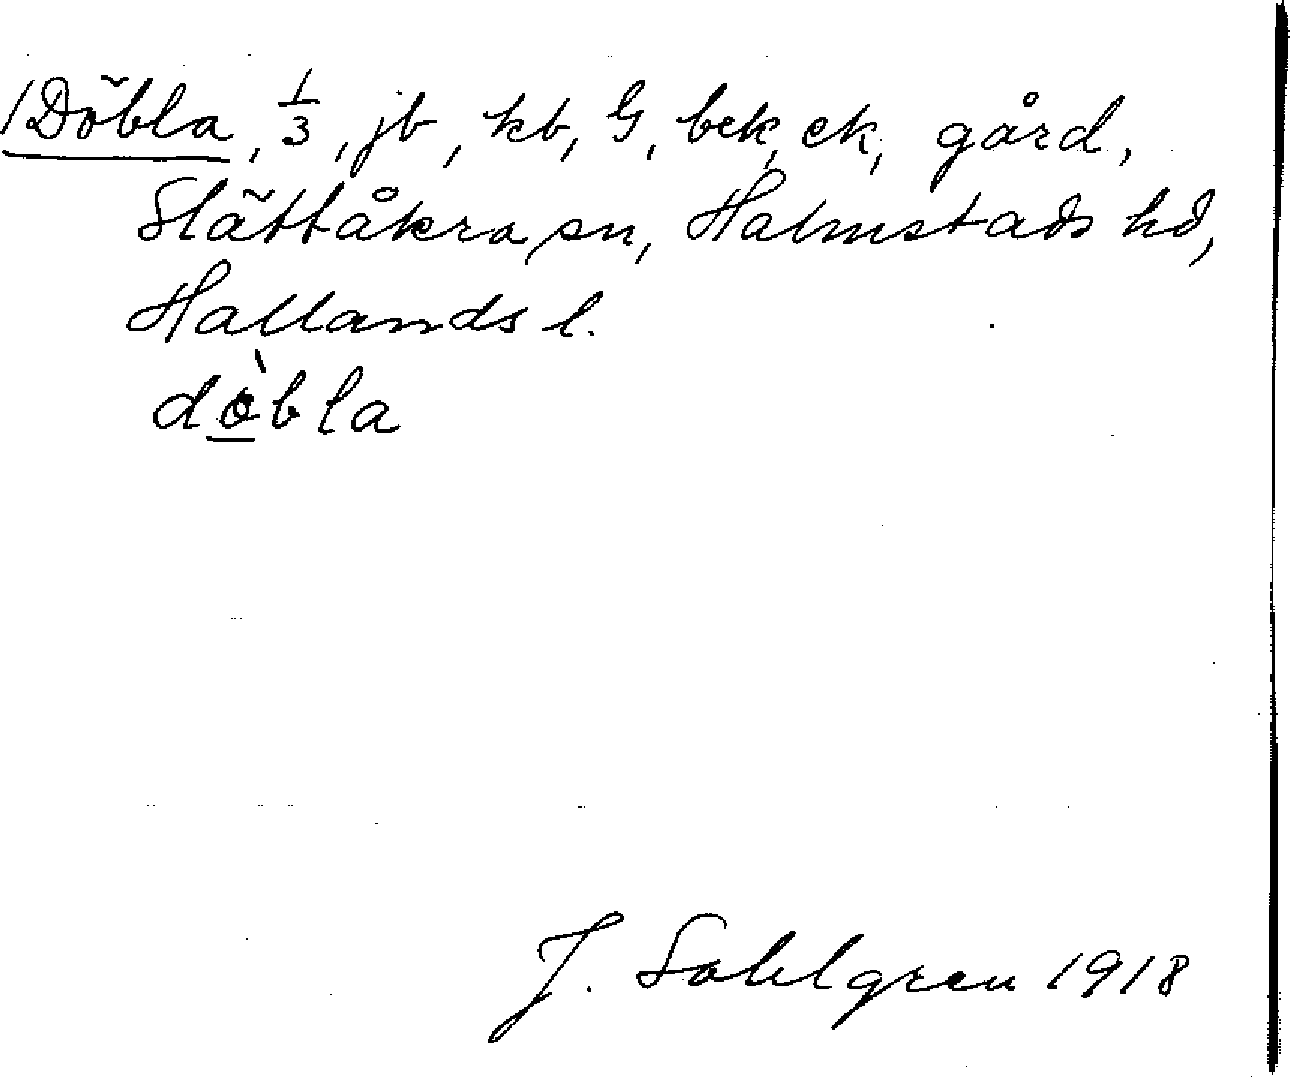 1 Döbla, 1/3, jb, kb, G, bek, ek, gård,
Slättåkra sn, Halmstads hd,
Hallands l.
dö̀bla
J. Sahlgren 1918